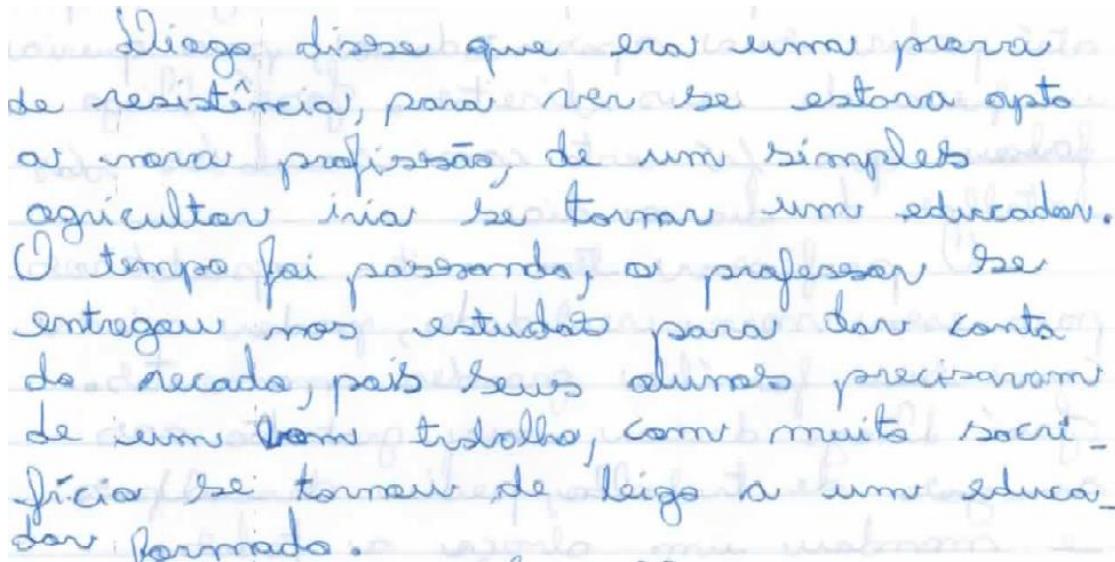 Diogo disse que era uma prova
de resistência, para ver se estava apto
a nova profissão, de um simples
agricultor iria se tornar um educador.
O tempo foi passando, o professor se
entregou nos estudos para dar conta
do recado, pois seus alunos precisavam
de um bom trabalho, com muito sacri-
fício se tornou de leigo a um educa-
dor formado.